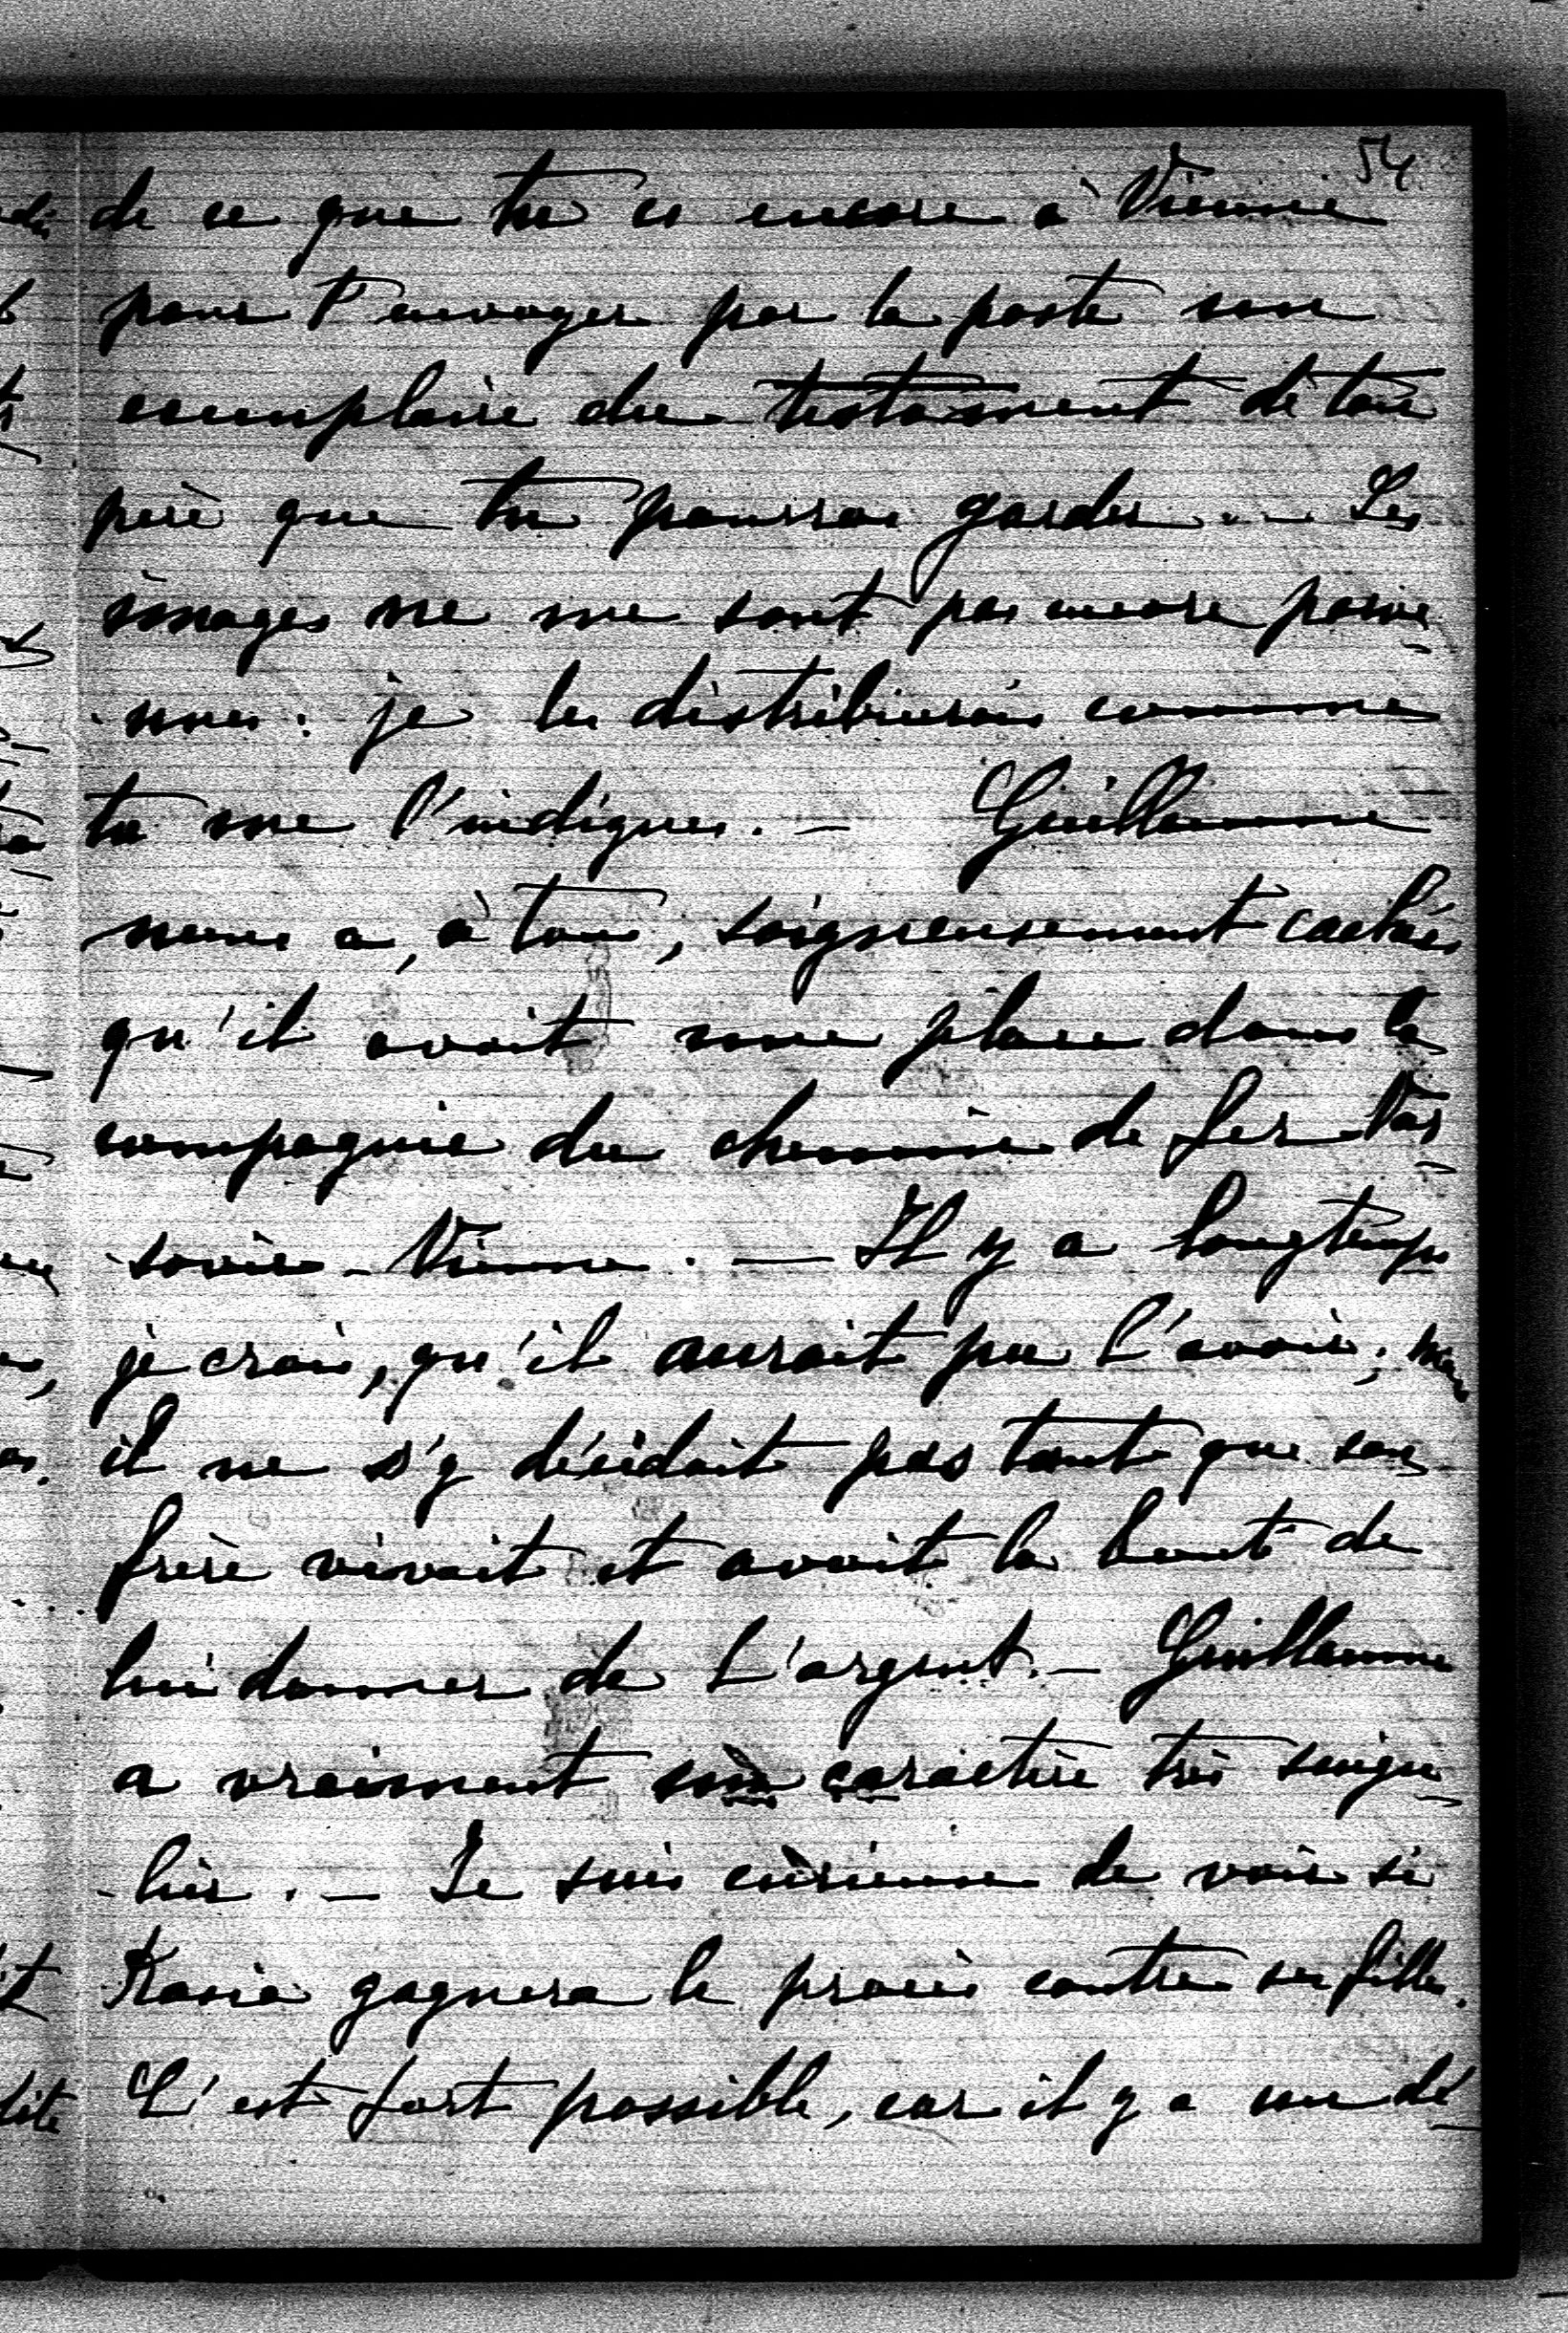 54
de ce que tu es encore à Vienne
pour t'envoyer par la poste son
exemplaire du testament de ton
père que tu pourras garder. — Les
images ne me sont pas encore parve-
-nues : je les distribuerai comme
tu me l'indiques. — Guillaume
nous a, à tous, soigneusement cachés
qu'il avait une place dans la
compagnie du chemin de fer Var-
-sovie-Vienne. — Il y a longtemps
je crois, qu'il aurait pu l'avoir ; mais
il ne s'y décidait pas tant que son
frère vivait et avait la bonté de
lui donner de l'argent. — Guillaume
a vraiment un caractère très singu-
-lier. — Je suis curieuse de voir si
Kasia gagnera le procès contre ses filles.
C'est fort possible, car il y a un dé-